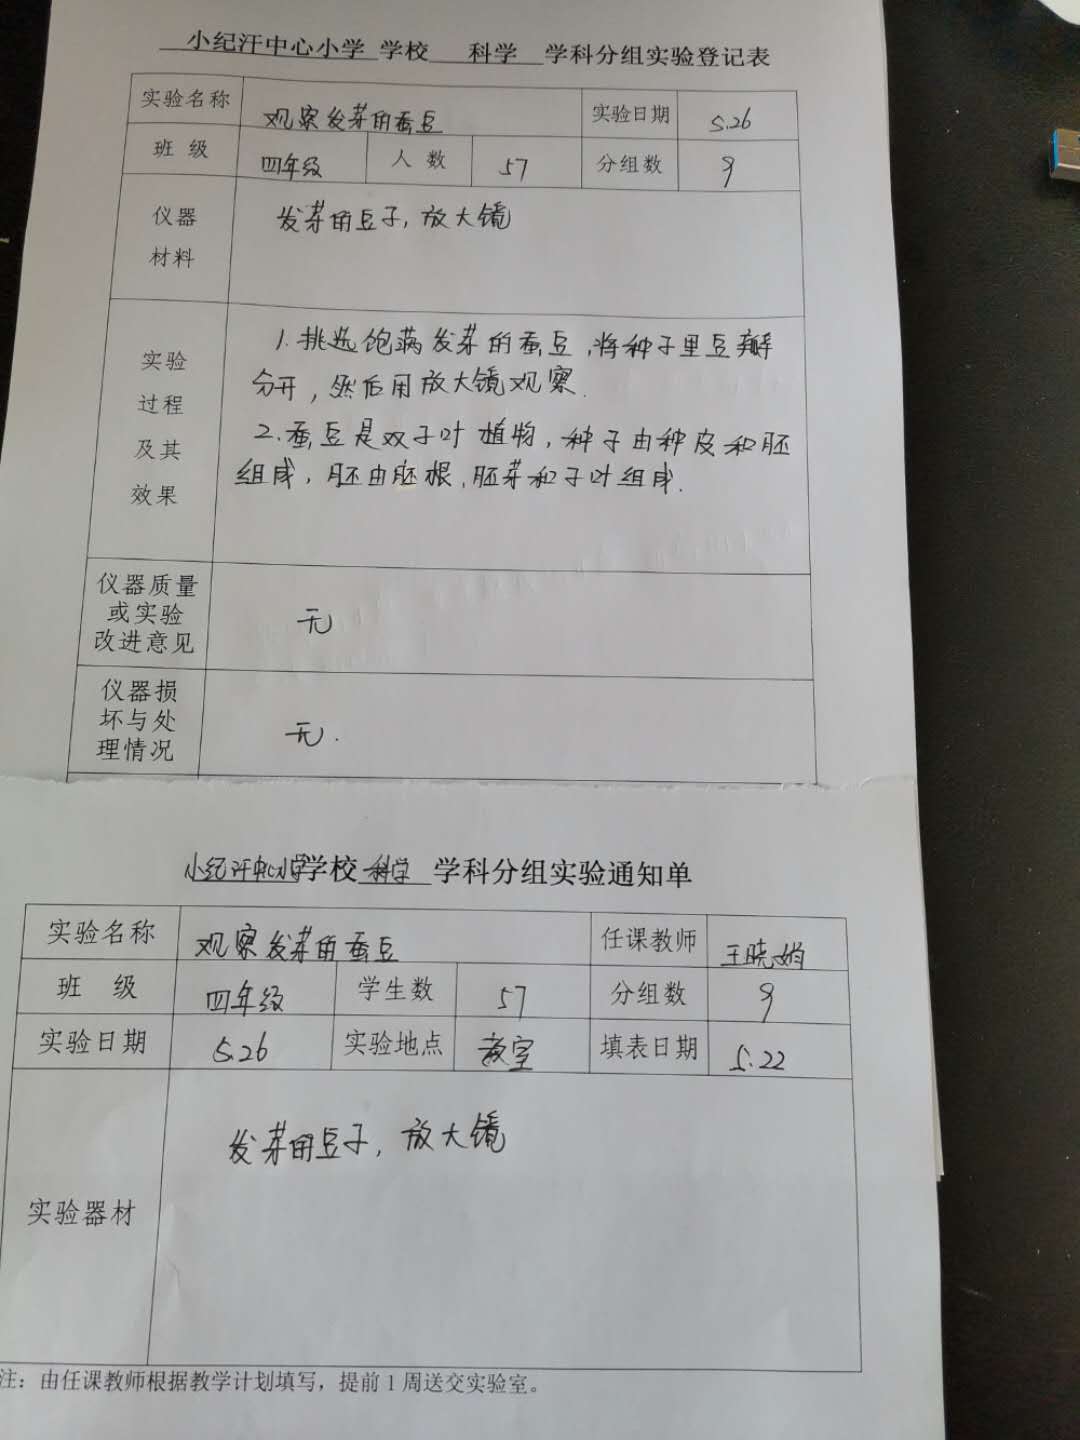 小纪汗中心小学 学校 科学 学科分组实验登记表
实验名称 观察发芽的蚕豆 实验日期 5.26
班 级 四年级 人 数 57 分组数 9
仪器
材料
发芽的豆子,放大镜
实验
过程
及其
效果
1.挑选饱满发芽的蚕豆,将种子里豆瓣
分开,然后用放大镜观察.
2.蚕豆是双子叶植物,种子由种皮和胚
组成,胚由胚根,胚芽和子叶组成.
仪器质量
或实验
改进意见
无
仪器损
坏与处
理情况
无.
小纪汗中心小学学校 科学 学科分组实验通知单
实验名称 观察发芽的蚕豆 任课教师 王晓娟
班 级 四年级 学生数 57 分组数 9
实验日期 5.26 实验地点 教室 填表日期 5.22
实验器材
发芽的豆子,放大镜
注：由任课教师根据教学计划填写，提前1周送交实验室。